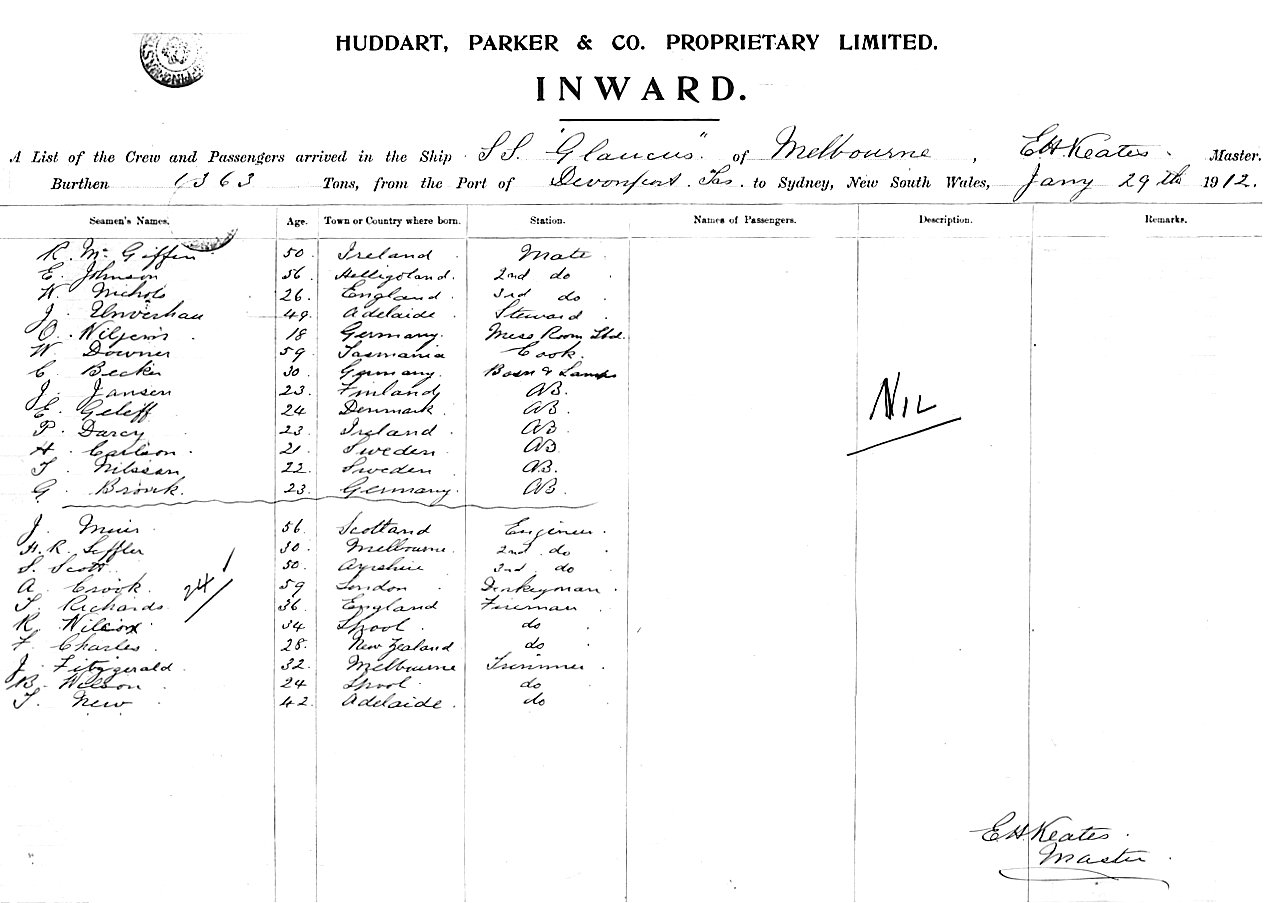 HUDDART, PARKER & CO. PROPRIETARY LIMITED.
INWARD.
A List of the Crew and Passengers arrived in the Ship S.S. "Glaucus" of Melbourne, E H Keates. Master.
Burthen 1363 Tons, from the Port of Devonport. Tas. to Sydney, New South Wales, Jany 29th 1912.
Seamen's Names. Age. Town or Country where born. Station. Names of Passengers. Description. Remarks.
R. Mc Giffin 50. Ireland Mate
E. Johnson 56. Helligoland. 2nd do
W. Nichols 26. England. 3rd do
J. Unverhau 49. Adelaide Steward
O. 18 Germany. Mess Room Std.
W. Downer 59. Tasmania Cook.
C. Becker 30. Germany. Bosn & Lamps
J. Jansen 23. Finland AB.
E. Geleff 24 Denmark AB.
Nil
P. Darcy 23. Ireland AB.
H. Carlson. 21 Sweden AB
T. Nilssan 22. Sweden AB.
G. Bronk. 23. Germany. AB.
J. Muir 56. Scotland Engineer
H. R. 30. Melbourne. 2nd do
S. Scott 50. Ayrshire 3rd do
A. Crook. 59 London Donkeyman
24
T. Richards 36. England Fireman
R. Wilcox 34 Lpool. do
F. Charles 28. New Zealand do
J. Fitzgerald. 32. Melbourne Trimmer
B. Wilson 24 Lpool. do
T. New 42. Adelaide. do
E H Keates.
Master